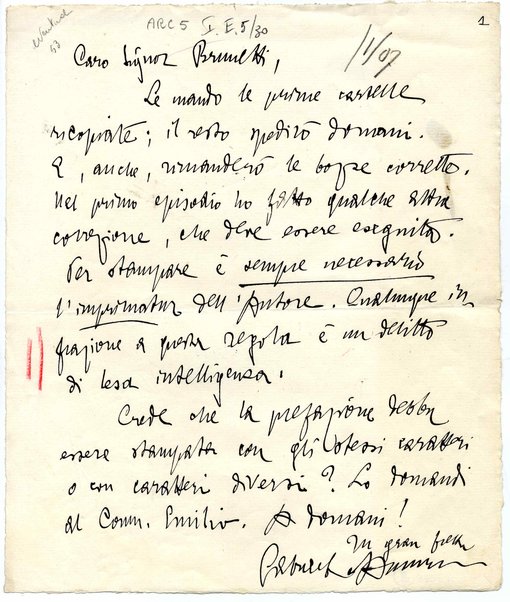 ARC 5 I.E.5/30
1
1/1/07
Caro Signor Brunetti,
Le mando le prime cartelle
ricopiate; il resto spedirò domani.
E, anche, rimanderò le bozze corrette.
Nel primo episodio ho fatto qualche altra
correzione, che deve essere eseguita.
Per stampare è sempre necessario
l'imprimatur dell'Autore. Qualunque in-
frazione a questa regola è un delitto
di lesa intelligenza.
Crede che la prefazione debba
essere stampata con gli stessi caratteri
o con caratteri diversi? Lo domandi
al Comm. Emilio. A domani!
In gran fretta
Gabriele d'Annunzio